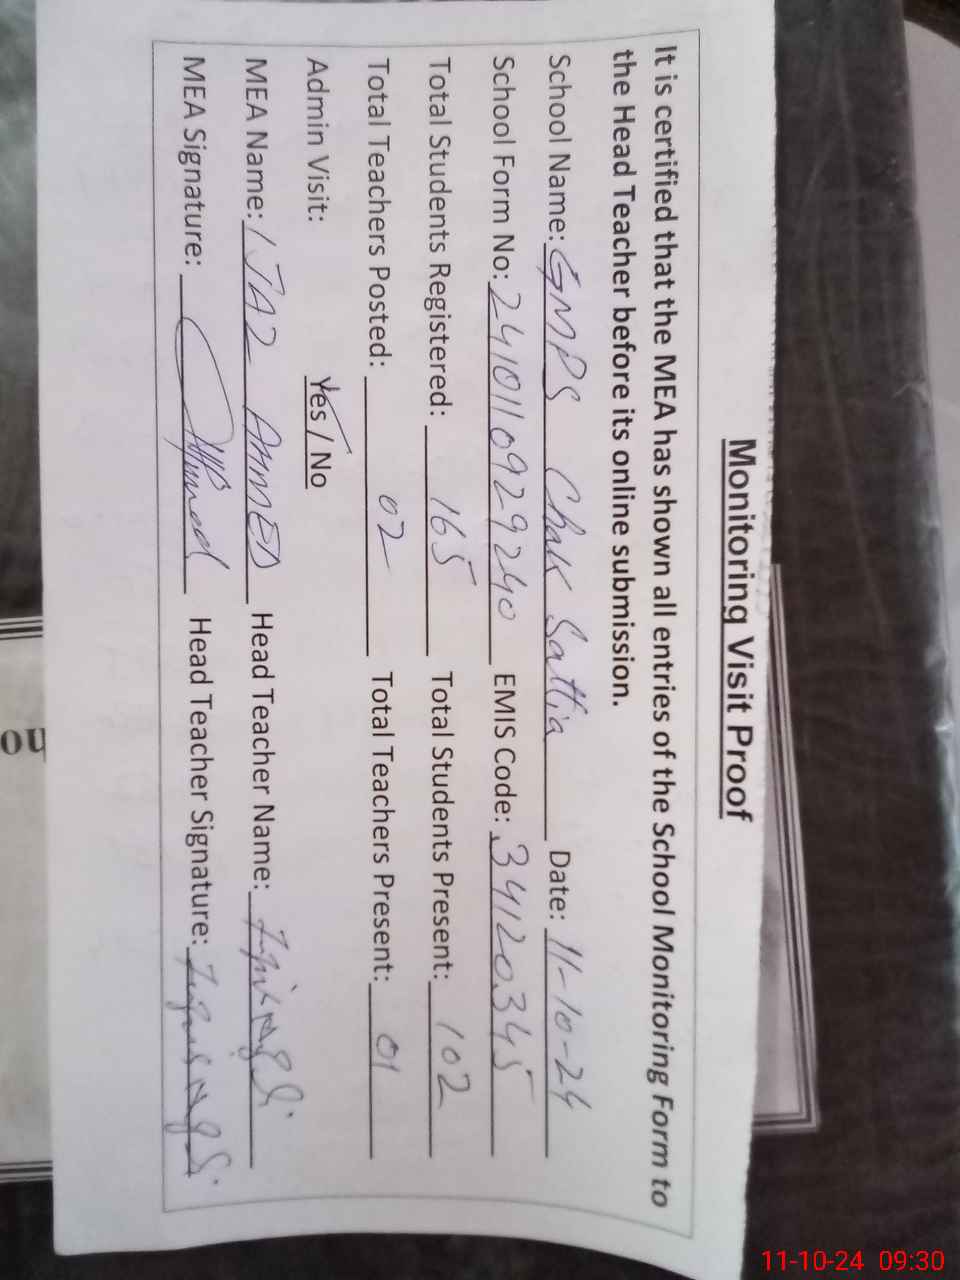 Monitoring Visit Proof
It is certified that the MEA has shown all entries of the School Monitoring Form to
the Head Teacher before its online submission.
School Name: GMPS Chak Sattia Date: 11-10-24
School Form No: 2410110929240 EMIS Code: 34120345
Total Students Registered: 165 Total Students Present: 102
Total Teachers Posted: 02 Total Teachers Present: 01
Admin Visit: Yes / No
MEA Name: IJAZ AHMED Head Teacher Name:
MEA Signature: Ahmed Head Teacher Signature:
no
11-10-24 09:30